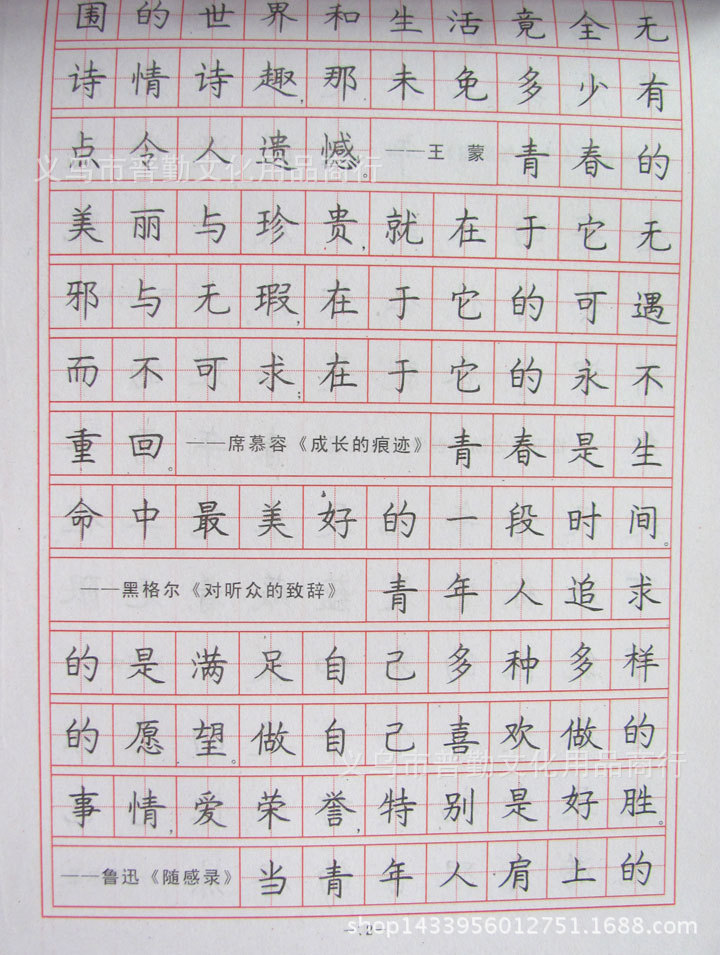 围的世界和生活竟全无
诗情诗趣，那未免多少有
点令人遗憾。——王 蒙 青春的
美丽与珍贵，就在于它无
邪与无瑕，在于它的可遇
而不可求；在于它的永不
重回。——席慕容《成长的痕迹》青春是生
命中最美好的一段时间。
——黑格尔《对听众的致辞》青年人追求
的是满足自己多种多样
的愿望。做自己喜欢做的
事情，爱荣誉，特别是好胜。
——鲁迅《随感录》当青年人肩上的
义乌市普勤文化用品商行
义乌市普勤文化用品商行
shop1433956012751.1688.com